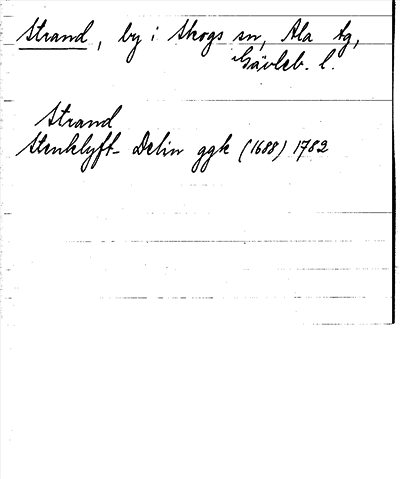 Strand, by i Skogs sn, Ala tg,
Gävleb. l.
Strand
Stenklyft- Delin ggk (1688) 1782